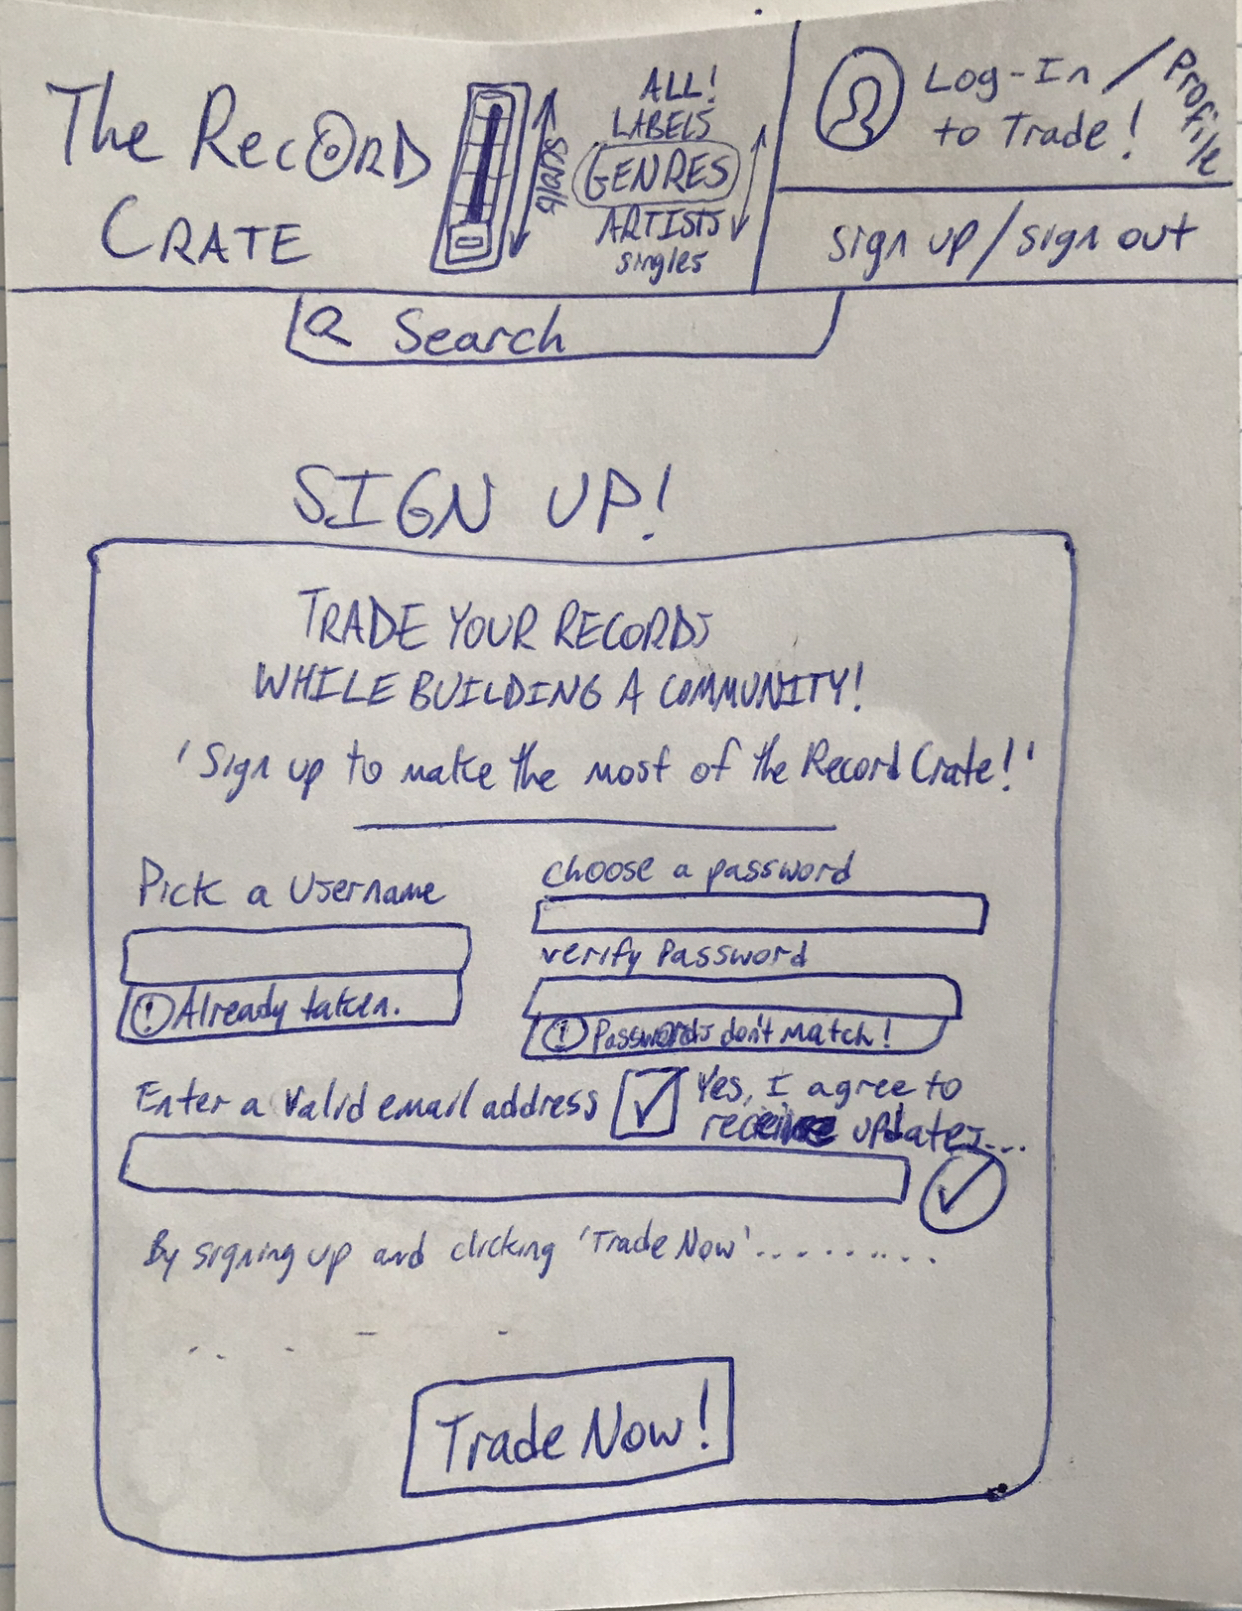 The RecORD
CRATE
Scroll
ALL!
LABELS
GENRES
ARTISTS
singles
Log-In / Profile
to Trade!
sign up/sign out
Search
SIGN UP!
TRADE YOUR RECORDS
WHILE BUILDING A COMMUNITY!
'Sign up to make the most of the Record Crate!'
Pick a Username
! Already taken.
choose a password
verify Password
! Passwords don't match!
Enter a valid email address
Yes, I agree to
receive updates...
By signing up and clicking 'Trade Now'..........
Trade Now!